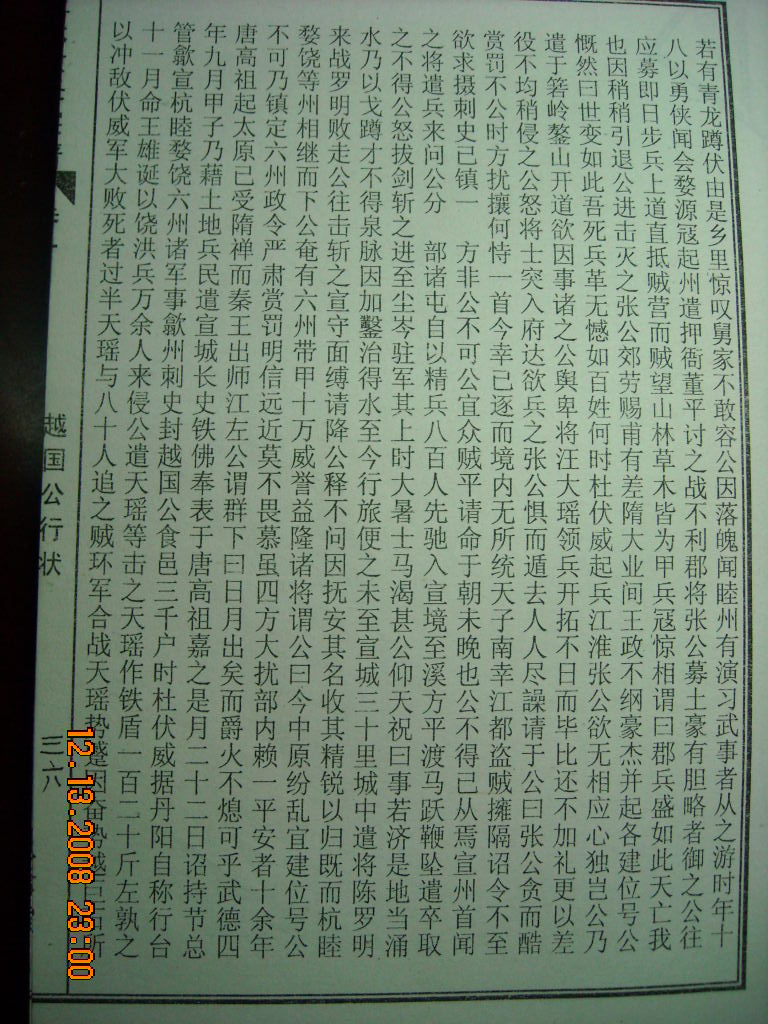 若有青龙蹲伏由是乡里惊叹舅家不敢容公因落魄闻睦州有演习武事者从之游时年十
八以勇侠闻会婺源寇起州遣押衙董平讨之战不利郡将张公募土豪有胆略者御之公往
应募即日步兵上道直抵贼营而贼望山林草木皆为甲兵寇惊相谓曰郡兵盛如此天亡我
也因稍稍引退公进击灭之张公郊劳赐甫有差隋大业间王政不纲豪杰并起各建位号公
慨然曰世变如此吾死兵革无憾如百姓何时杜伏威起兵江淮张公欲无相应心独岂公乃
遣于箬岭鏊山开道欲因事诸之公舆卑将汪大瑶领兵开拓不日而毕比还不加礼更以差
役不均稍侵之公怒将士突入府达欲兵之张公惧而遁去人人尽譟请于公曰张公贪而酷
赏罚不公时方扰攘何恃一首今幸已逐而境内无所统天子南幸江都盗贼擁隔诏令不至
欲求摄刺史己镇一 方非公不可公宜众贼平请命于朝未晚也公不得已从焉宣州首闻
之将遣兵来问公分 部诸屯自以精兵八百人先驰入宣境至溪方平渡马跃鞭坠遣卒取
之不得公怒拔剑斩之进至尘岑驻军其上时大暑士马渴甚公仰天祝曰事若济是地当涌
水乃以戈蹲才不得泉脉因加鑿治得水至今行旅便之未至宣城三十里城中遣将陈罗明
来战罗明败走公往击斩之宣守面缚请降公释不问因抚安其名收其精锐以归既而杭睦
婺饶等州相继而下公奄有六州带甲十万威誉益隆诸将谓公曰今中原纷乱宜建位号公
不可乃镇定六州政令严肃赏罚明信远近莫不畏慕虽四方大扰部内赖一平安者十余年
唐高祖起太原已受隋禅而秦王出师江左公谓群下曰日月出矣而爵火不熄可乎武德四
年九月甲子乃藉土地兵民遣宣城长史铁佛奉表于唐高祖嘉之是月二十二日诏持节总
管歙宣杭睦婺饶六州诸军事歙州刺史封越国公食邑三千户时杜伏威据丹阳自称行台
十一月命王雄诞以饶洪兵万余人来侵公遣天瑶等击之天瑶作铁盾一百二十斤左孰之
以冲敌伏威军大败死者过半天瑶与八十人追之贼环军合战天瑶势蹙因奋势越巨石所
越国公行状
三六
12.13.2008 23:00